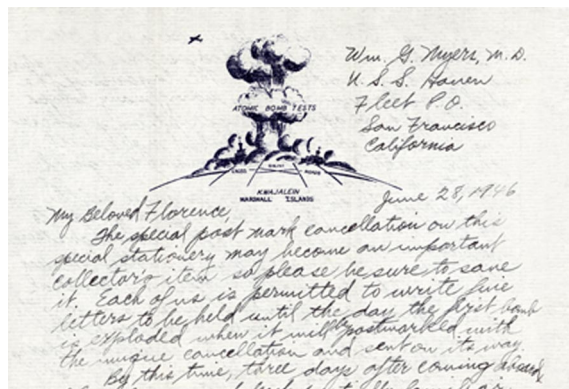 Wm. G. Myers, M.D.
U.S.S. Haven
Fleet P.O.
San Francisco
California
ATOMIC BOMB TESTS
KWAJALEIN
MARSHALL ISLANDS
June 28, 1946
My Beloved Florence,
The special post mark cancellation on this
special stationery may become an important
collector's item so please be sure to save
it. Each of us is permitted to write five
letters to be held until the day the first bomb
is exploded when it will be postmarked with
the unique cancellation and sent on its way.
By this time, three days after coming aboard,